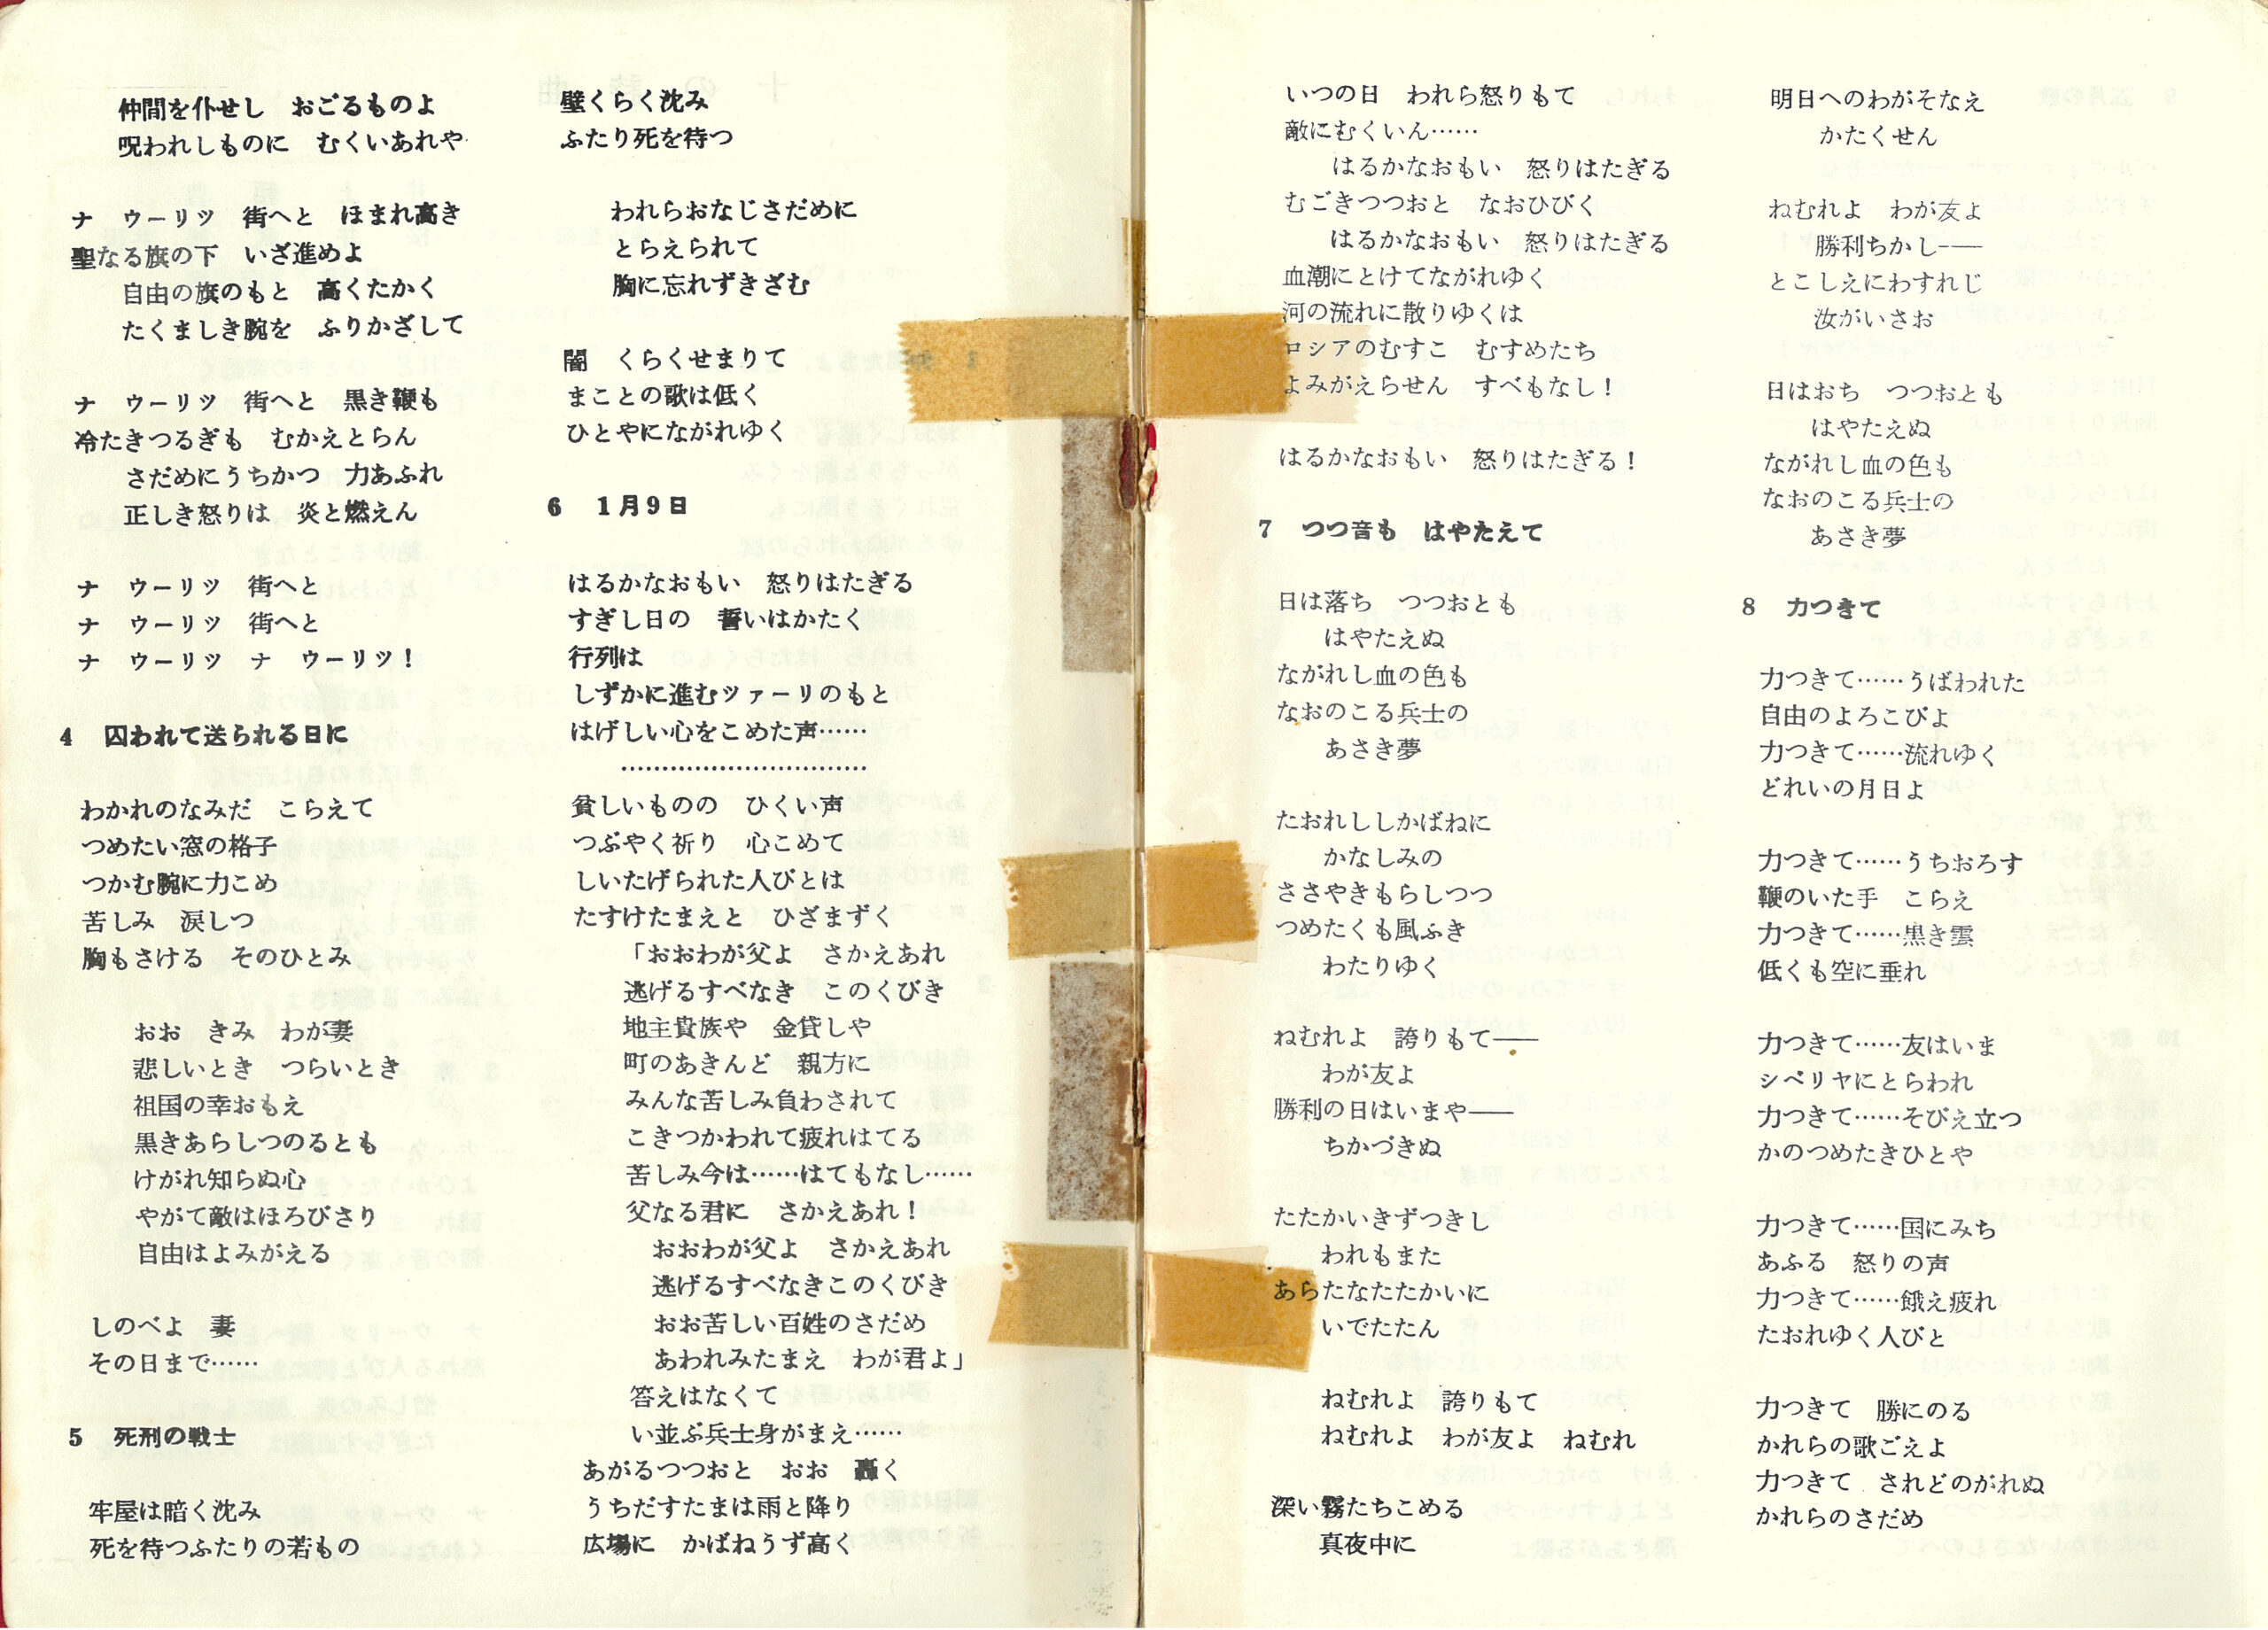 仲間を仆せし　おごるものよ
呪われしものに　むくいあれや
ナ　ウーリツ　街へと　ほまれ高き
聖なる旗の下　いざ進めよ
自由の旗のもと　高くたかく
たくましき腕を　ふりかざして
ナ　ウーリツ　街へと　黒き鞭も
冷たきつるぎも　むかえとらん
さだめにうちかつ　力あふれ
正しき怒りは　炎と燃えん
ナ　ウーリツ　街へと
ナ　ウーリツ　街へと
ナ　ウーリツ　ナ　ウーリツ！
4　囚われて送られる日に
わかれのなみだ　こらえて
つめたい窓の格子
つかむ腕に力こめ
苦しみ　涙しつ
胸もさける　そのひとみ
おお　きみ　わが妻
悲しいとき　つらいとき
祖国の幸おもえ
黒きあらしつのるとも
けがれ知らぬ心
やがて敵はほろびさり
自由はよみがえる
しのべよ　妻
その日まで……
5　死刑の戦士
牢屋は暗く沈み
死を待つふたりの若もの
壁くらく沈み
ふたり死を待つ
われらおなじさだめに
とらえられて
胸に忘れずきざむ
闇　くらくせまりて
まことの歌は低く
ひとやにながれゆく
6　1月9日
はるかなおもい　怒りはたぎる
すぎし日の　誓いはかたく
行列は
しずかに進むツァーリのもと
はげしい心をこめた声……
…………………………
貧しいものの　ひくい声
つぶやく祈り　心こめて
しいたげられた人びとは
たすけたまえと　ひざまずく
「おおわが父よ　さかえあれ
逃げるすべなき　このくびき
地主貴族や　金貸しや
町のあきんど　親方に
みんな苦しみ負わされて
こきつかわれて疲れはてる
苦しみ今は……はてもなし……
父なる君に　さかえあれ！
おおわが父よ　さかえあれ
逃げるすべなきこのくびき
おお苦しい百姓のさだめ
あわれみたまえ　わが君よ」
答えはなくて
い並ぶ兵士身がまえ……
あがるつつおと　おお　轟く
うちだすたまは雨と降り
広場に　かばねうず高く
いつの日　われら怒りもて
敵にむくいん……
はるかなおもい　怒りはたぎる
むごきつつおと　なおひびく
はるかなおもい　怒りはたぎる
血潮にとけてながれゆく
河の流れに散りゆくは
ロシアのむすこ　むすめたち
よみがえらせん　すべもなし！
はるかなおもい　怒りはたぎる！
7　つつ音も　はやたえて
日は落ち　つつおとも
はやたえぬ
ながれし血の色も
なおのこる兵士の
あさき夢
たおれししかばねに
かなしみの
ささやきもらしつつ
つめたくも風ふき
わたりゆく
ねむれよ　誇りもて――
わが友よ
勝利の日はいまや――
ちかづきぬ
たたかいきずつきし
われもまた
あらたなたたかいに
いでたたん
ねむれよ　誇りもて
ねむれよ　わが友よ　ねむれ
深い霧たちこめる
真夜中に
明日へのわがそなえ
かたくせん
ねむれよ　わが友よ
勝利ちかし――
とこしえにわすれじ
汝がいさお
日はおち　つつおとも
はやたえぬ
ながれし血の色も
なおのこる兵士の
あさき夢
8　力つきて
力つきて……うばわれた
自由のよろこびよ
力つきて……流れゆく
どれいの月日よ
力つきて……うちおろす
鞭のいた手　こらえ
力つきて……黒き雲
低くも空に垂れ
力つきて……友はいま
シベリヤにとらわれ
力つきて……そびえ立つ
かのつめたきひとや
力つきて……国にみち
あふる　怒りの声
力つきて……餓え疲れ
たおれゆく人びと
力つきて　勝にのる
かれらの歌ごえよ
力つきて　されどのがれぬ
かれらのさだめ